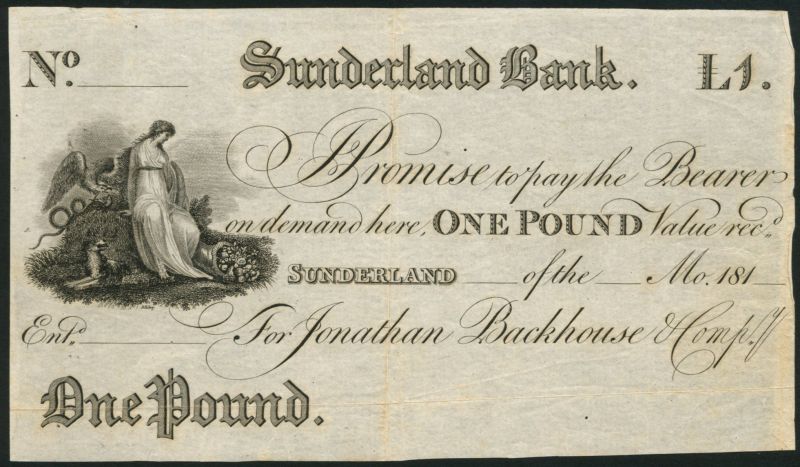 No. Sunderland Bank. L1.
I Promise to pay the Bearer
on demand here, ONE POUND Value rec.d
SUNDERLAND of the Mo. 181
Ent.d For Jonathan Backhouse & Comp.y
One Pound.